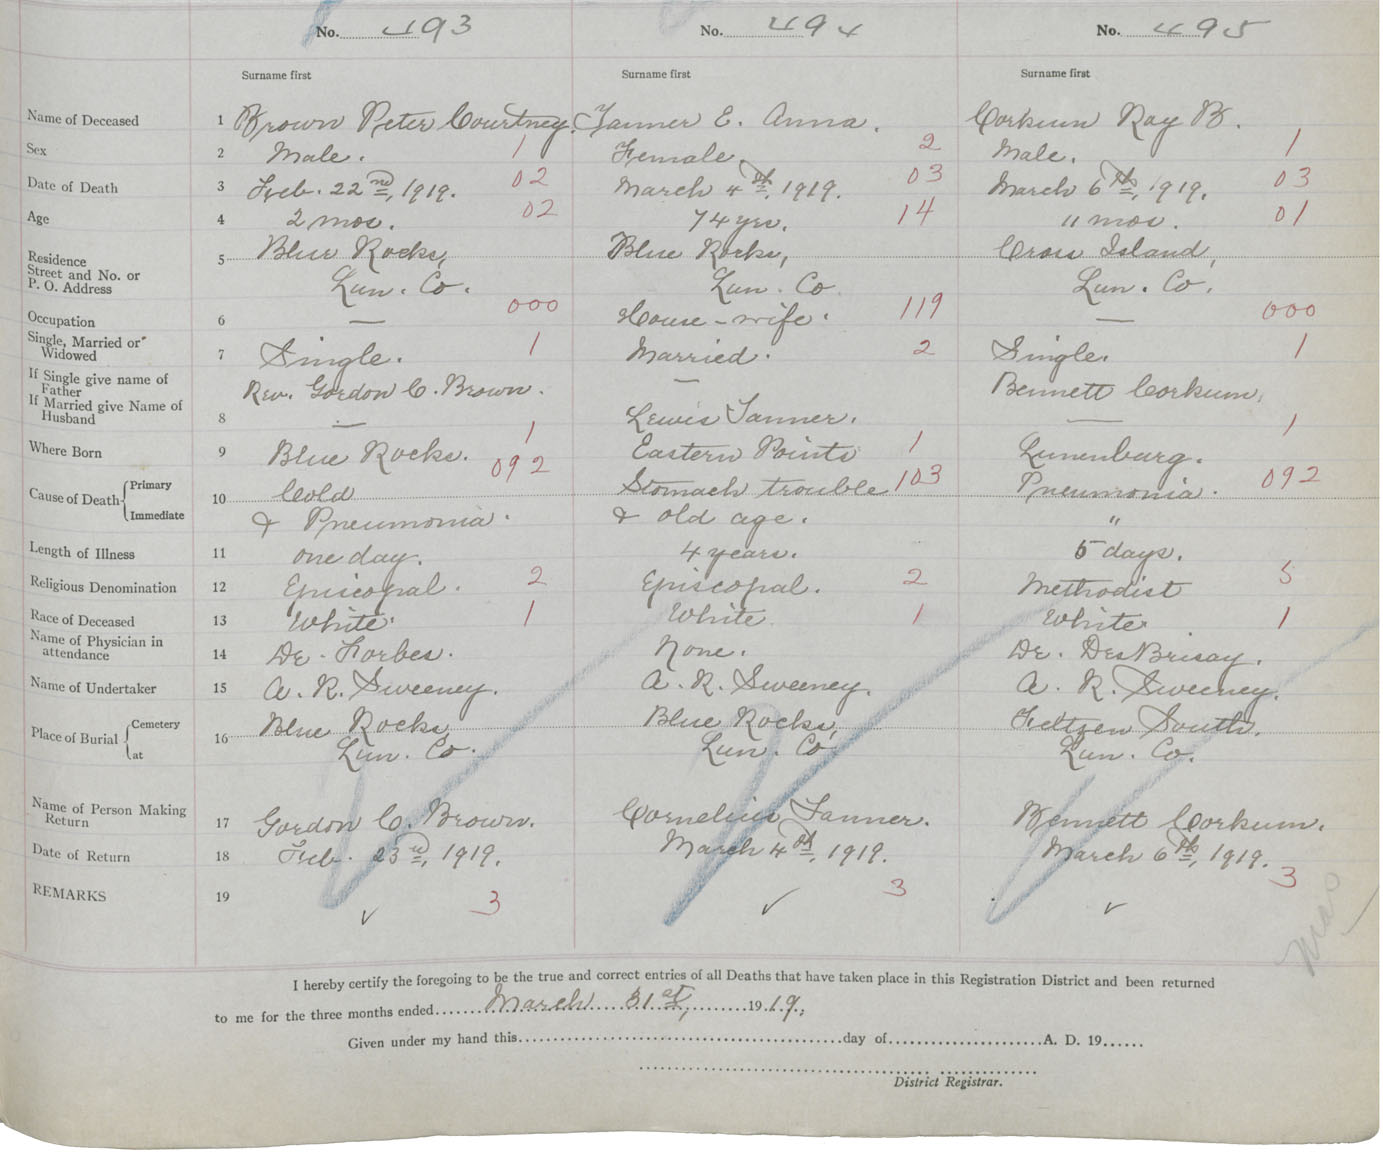 No. 493 No. 494 No. 495
Surname first Surname first Surname first
Name of Deceased 1 Brown Peter Courtney. Tanner E. Anna. Corkum Ray B.
Sex 2 Male. 1 Female 2 Male. 1
Date of Death 3 Feb. 22nd, 1919. 02 March 4th, 1919. 03 March 6th, 1919. 03
Age 4 2 mos. 02 74 yrs. 14 11 mos. 01
Residence 5 Blue Rocks, Blue Rocks, Cross Island,
Street and No. or
P. O. Address Lun. Co. Lun. Co Lun. Co.
Occupation 6 — 000 House-wife. 119 — 000
Single, Married or
Widowed 7 Single. 1 Married. 2 Single. 1
If Single give name of
Father Rev. Gordon C. Brown. — Bennett Corkum.
If Married give Name of
Husband 8 — Lewis Tanner. —
Where Born 9 Blue Rocks. 1 Eastern Points 1 Lunenburg. 1
Cause of Death { Primary 10 Cold 092 Stomach trouble 103 Pneumonia. 092
Immediate & Pneumonia. & old age. "
Length of Illness 11 one day. 4 years. 5 days.
Religious Denomination 12 Episcopal. 2 Episcopal. 2 Methodist 5
Race of Deceased 13 White. 1 White 1 White 1
Name of Physician in
attendance 14 Dr. Forbes. None. Dr. DesBrisay.
Name of Undertaker 15 A. R. Sweeney. A. R. Sweeney. A. R. Sweeney.
Place of Burial { Cemetery 16 Blue Rocks, Blue Rocks, Feltzen South.
at Lun. Co. Lun. Co Lun. Co.
Name of Person Making
Return 17 Gordon C. Brown. Cornelius Tanner. Bennett Corkum.
Date of Return 18 Feb. 23rd, 1919. March 4th, 1919. March 6th, 1919.
REMARKS 19 ✓ 3 ✓ 3 ✓ 3
I hereby certify the foregoing to be the true and correct entries of all Deaths that have taken place in this Registration District and been returned
to me for the three months ended March 31st, 1919.
Given under my hand this day of A. D. 19
District Registrar.